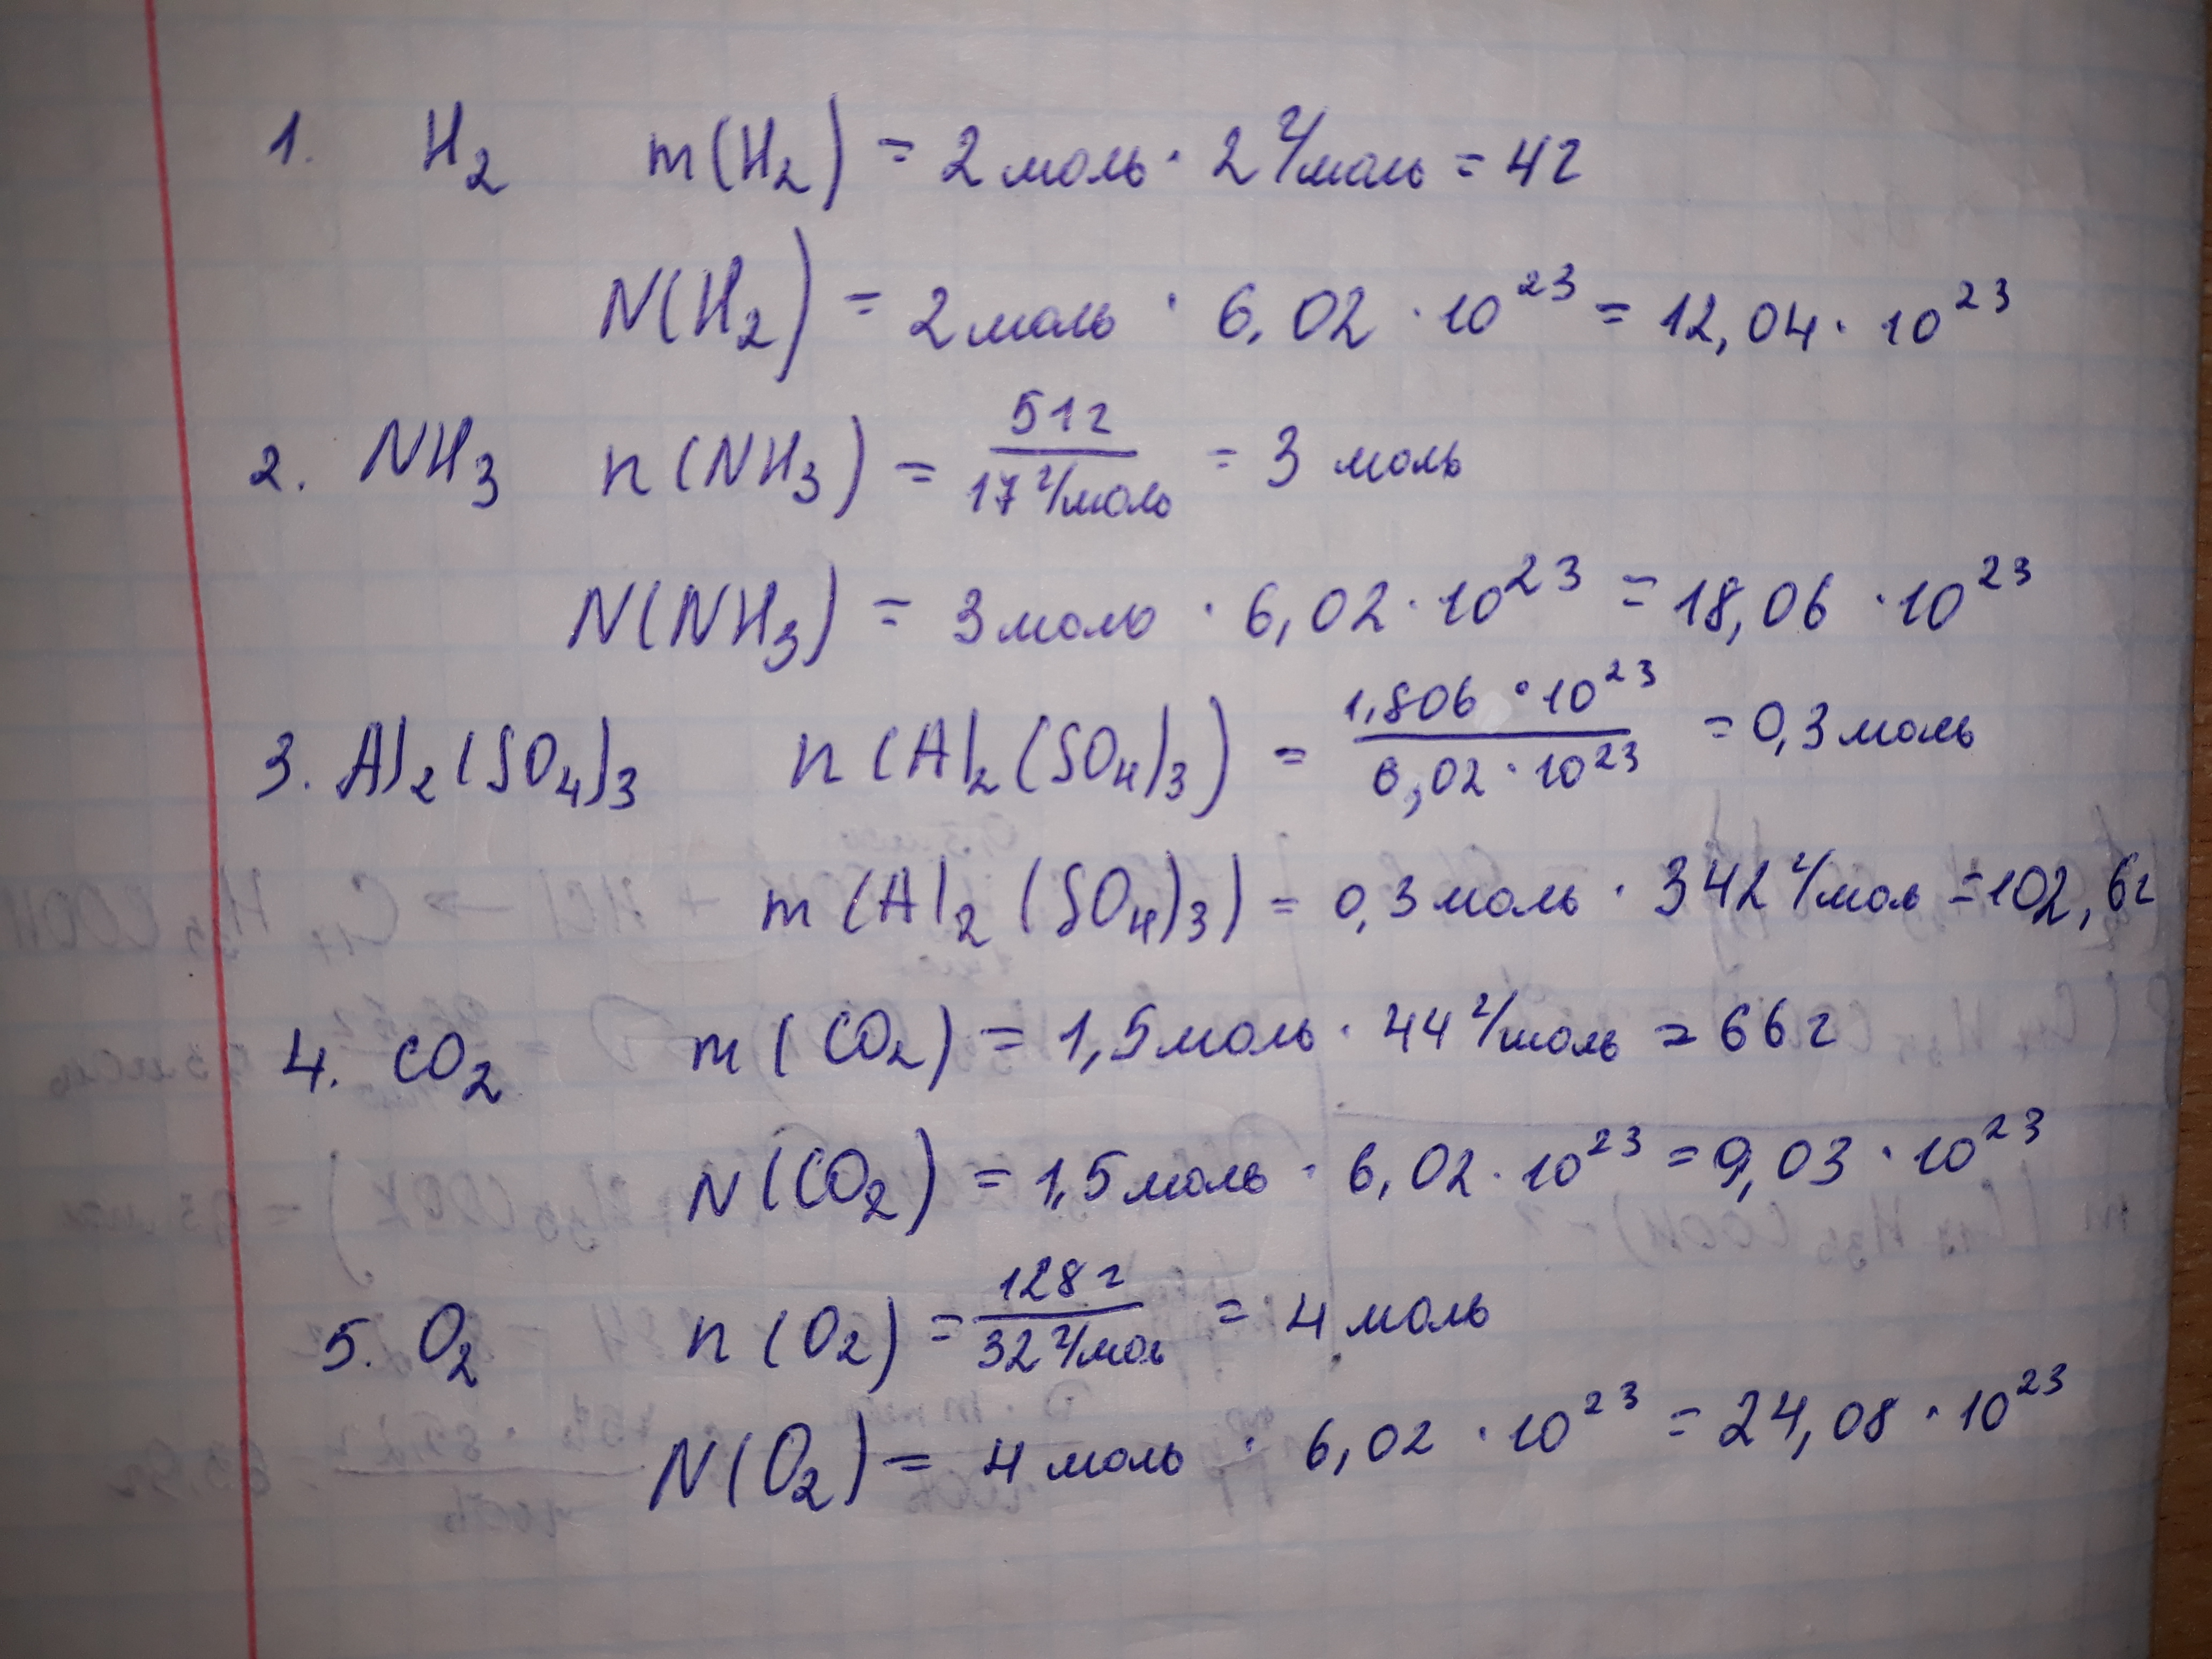 1. H₂ m(H₂) = 2 моль · 2 г/моль = 4г
N(H₂) = 2 моль · 6,02 · 10²³ = 12,04 · 10²³
2. NH₃ n(NH₃) = 51г / 17 г/моль = 3 моль
N(NH₃) = 3 моль · 6,02 · 10²³ = 18,06 · 10²³
3. Al₂(SO₄)₃ n(Al₂(SO₄)₃) = 1,806 · 10²³ / 6,02 · 10²³ = 0,3 моль
m(Al₂(SO₄)₃) = 0,3 моль · 342 г/мол = 102,6г
4. CO₂ m(CO₂) = 1,5 моль · 44 г/моль = 66 г
N(CO₂) = 1,5 моль · 6,02 · 10²³ = 9,03 · 10²³
5. O₂ n(O₂) = 128г / 32 г/мол = 4 моль
N(O₂) = 4 моль · 6,02 · 10²³ = 24,08 · 10²³